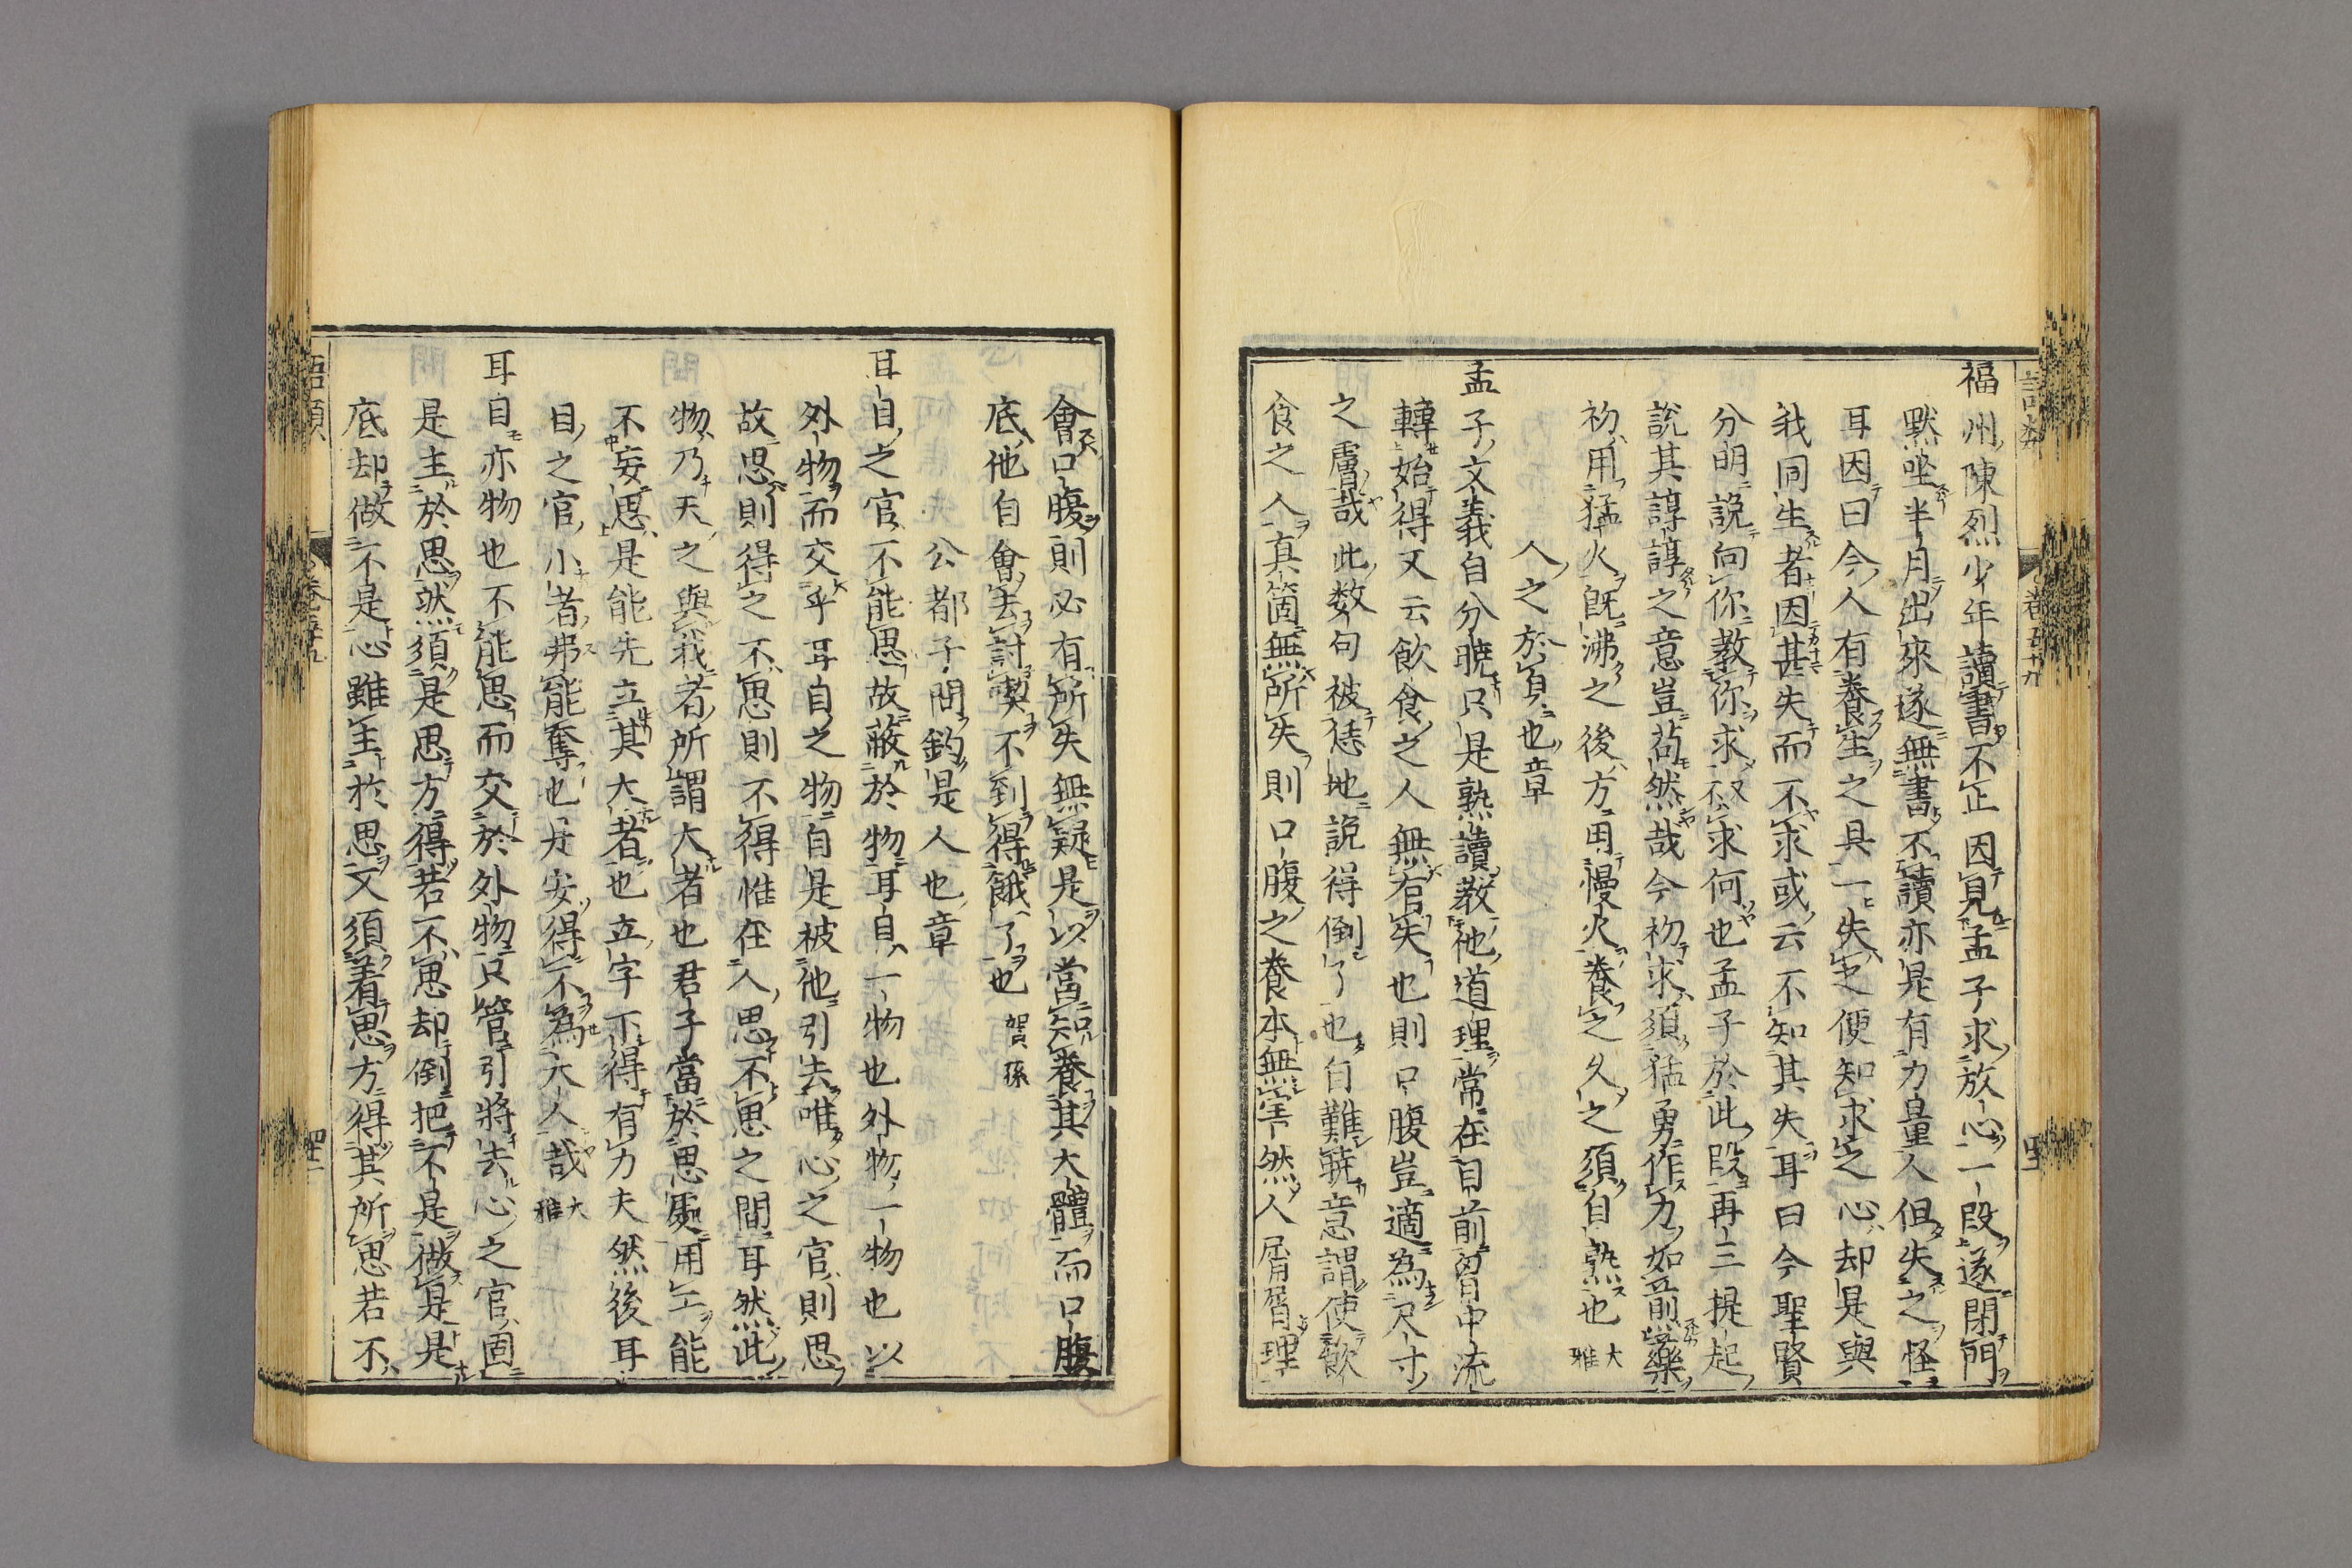 福州陳烈少年讀書不正因見孟子求放心一段遂閉門
默坐半月出來遂無書不讀亦是有力量人但失之怪
耳因曰今人有養生之具一失之便知求之心却是與
我同生者因甚失而不求或云不知其失耳曰今聖賢
分明說向你教你求又不求何也孟子於此段再三提起
說其諄諄之意豈苟然哉今初求須猛勇作力如煎藥
初用猛火既沸之後方用慢火養之久之須自熟也 大雅
人之於身也章
孟子文義自分曉只是熟讀教他道理常在目前胷中流
轉始得又云飲食之人無有失也則口腹豈適為尺寸
之膚哉此数句被恁地說得倒了也自難曉意謂使飲
食之人真箇無所失則口腹之養本無害然人屑屑理
會口腹則必有所失無疑是以當知養其大體而口腹
底他自會去討喫不到得餓了也 賀孫
公都子問鈞是人也章
耳目之官不能思故蔽於物耳目一物也外物一物也以
外物而交乎耳目之物自是被他引去唯心之官則思
故思則得之不思則不得惟在人思不思之間耳然此
物乃天之與我者所謂大者也君子當於思處用工能
不妄思是能先立其大者也立字下得有力夫然後耳
目之官小者弗能奪也是安得不為大人哉 大雅
耳目亦物也不能思而交於外物只管引將去心之官固
是主於思然須是思方得若不思却倒把不是做是是
底却做不是心雖主於思又須着思方得其所思若不